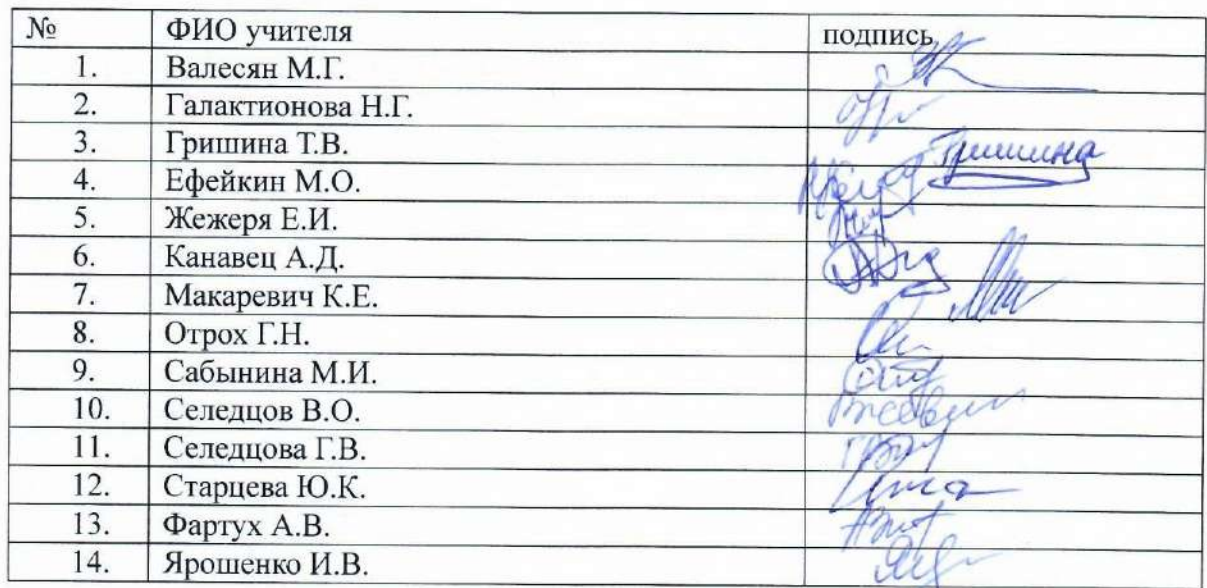 № ФИО учителя подпись
1. Валесян М.Г.
2. Галактионова Н.Г.
3. Гришина Т.В. Гришина
4. Ефейкин М.О.
5. Жежеря Е.И.
6. Канавец А.Д.
7. Макаревич К.Е.
8. Отрох Г.Н.
9. Сабынина М.И.
10. Селедцов В.О.
11. Селедцова Г.В.
12. Старцева Ю.К.
13. Фартух А.В.
14. Ярошенко И.В.